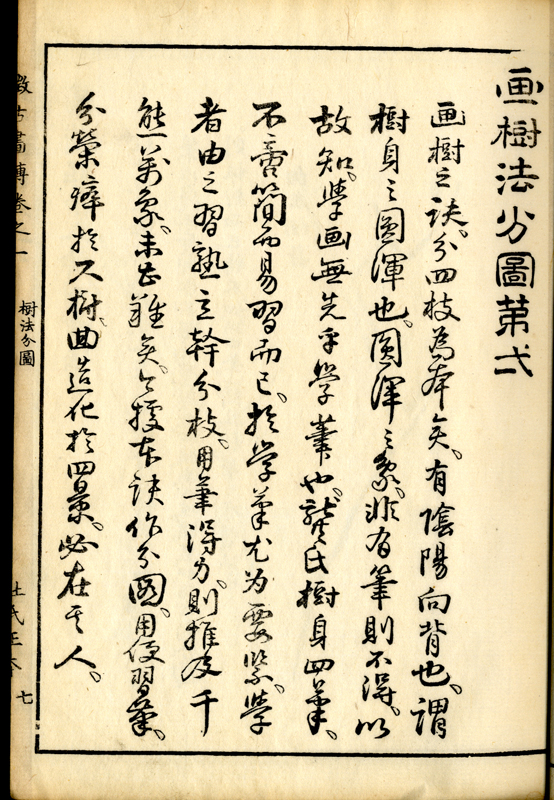 画樹法分圖第弍
画樹之訣。分四枝為本矣。有陰陽向背也。謂
樹身之圓渾也。圓渾之象。非有筆則不得。以
故知。學画無先乎學筆也。龔氏樹身四筆。
不啻簡而易習而已。於学筆尤为要緊。学
者由之習熟立幹分枝。用筆得力。則推及千
態萬象。未甞難矣。今據本訣作分圖。用便習筆。
分榮瘁於尺樹。画造化於四景。必在其人。
樹法分圖
七